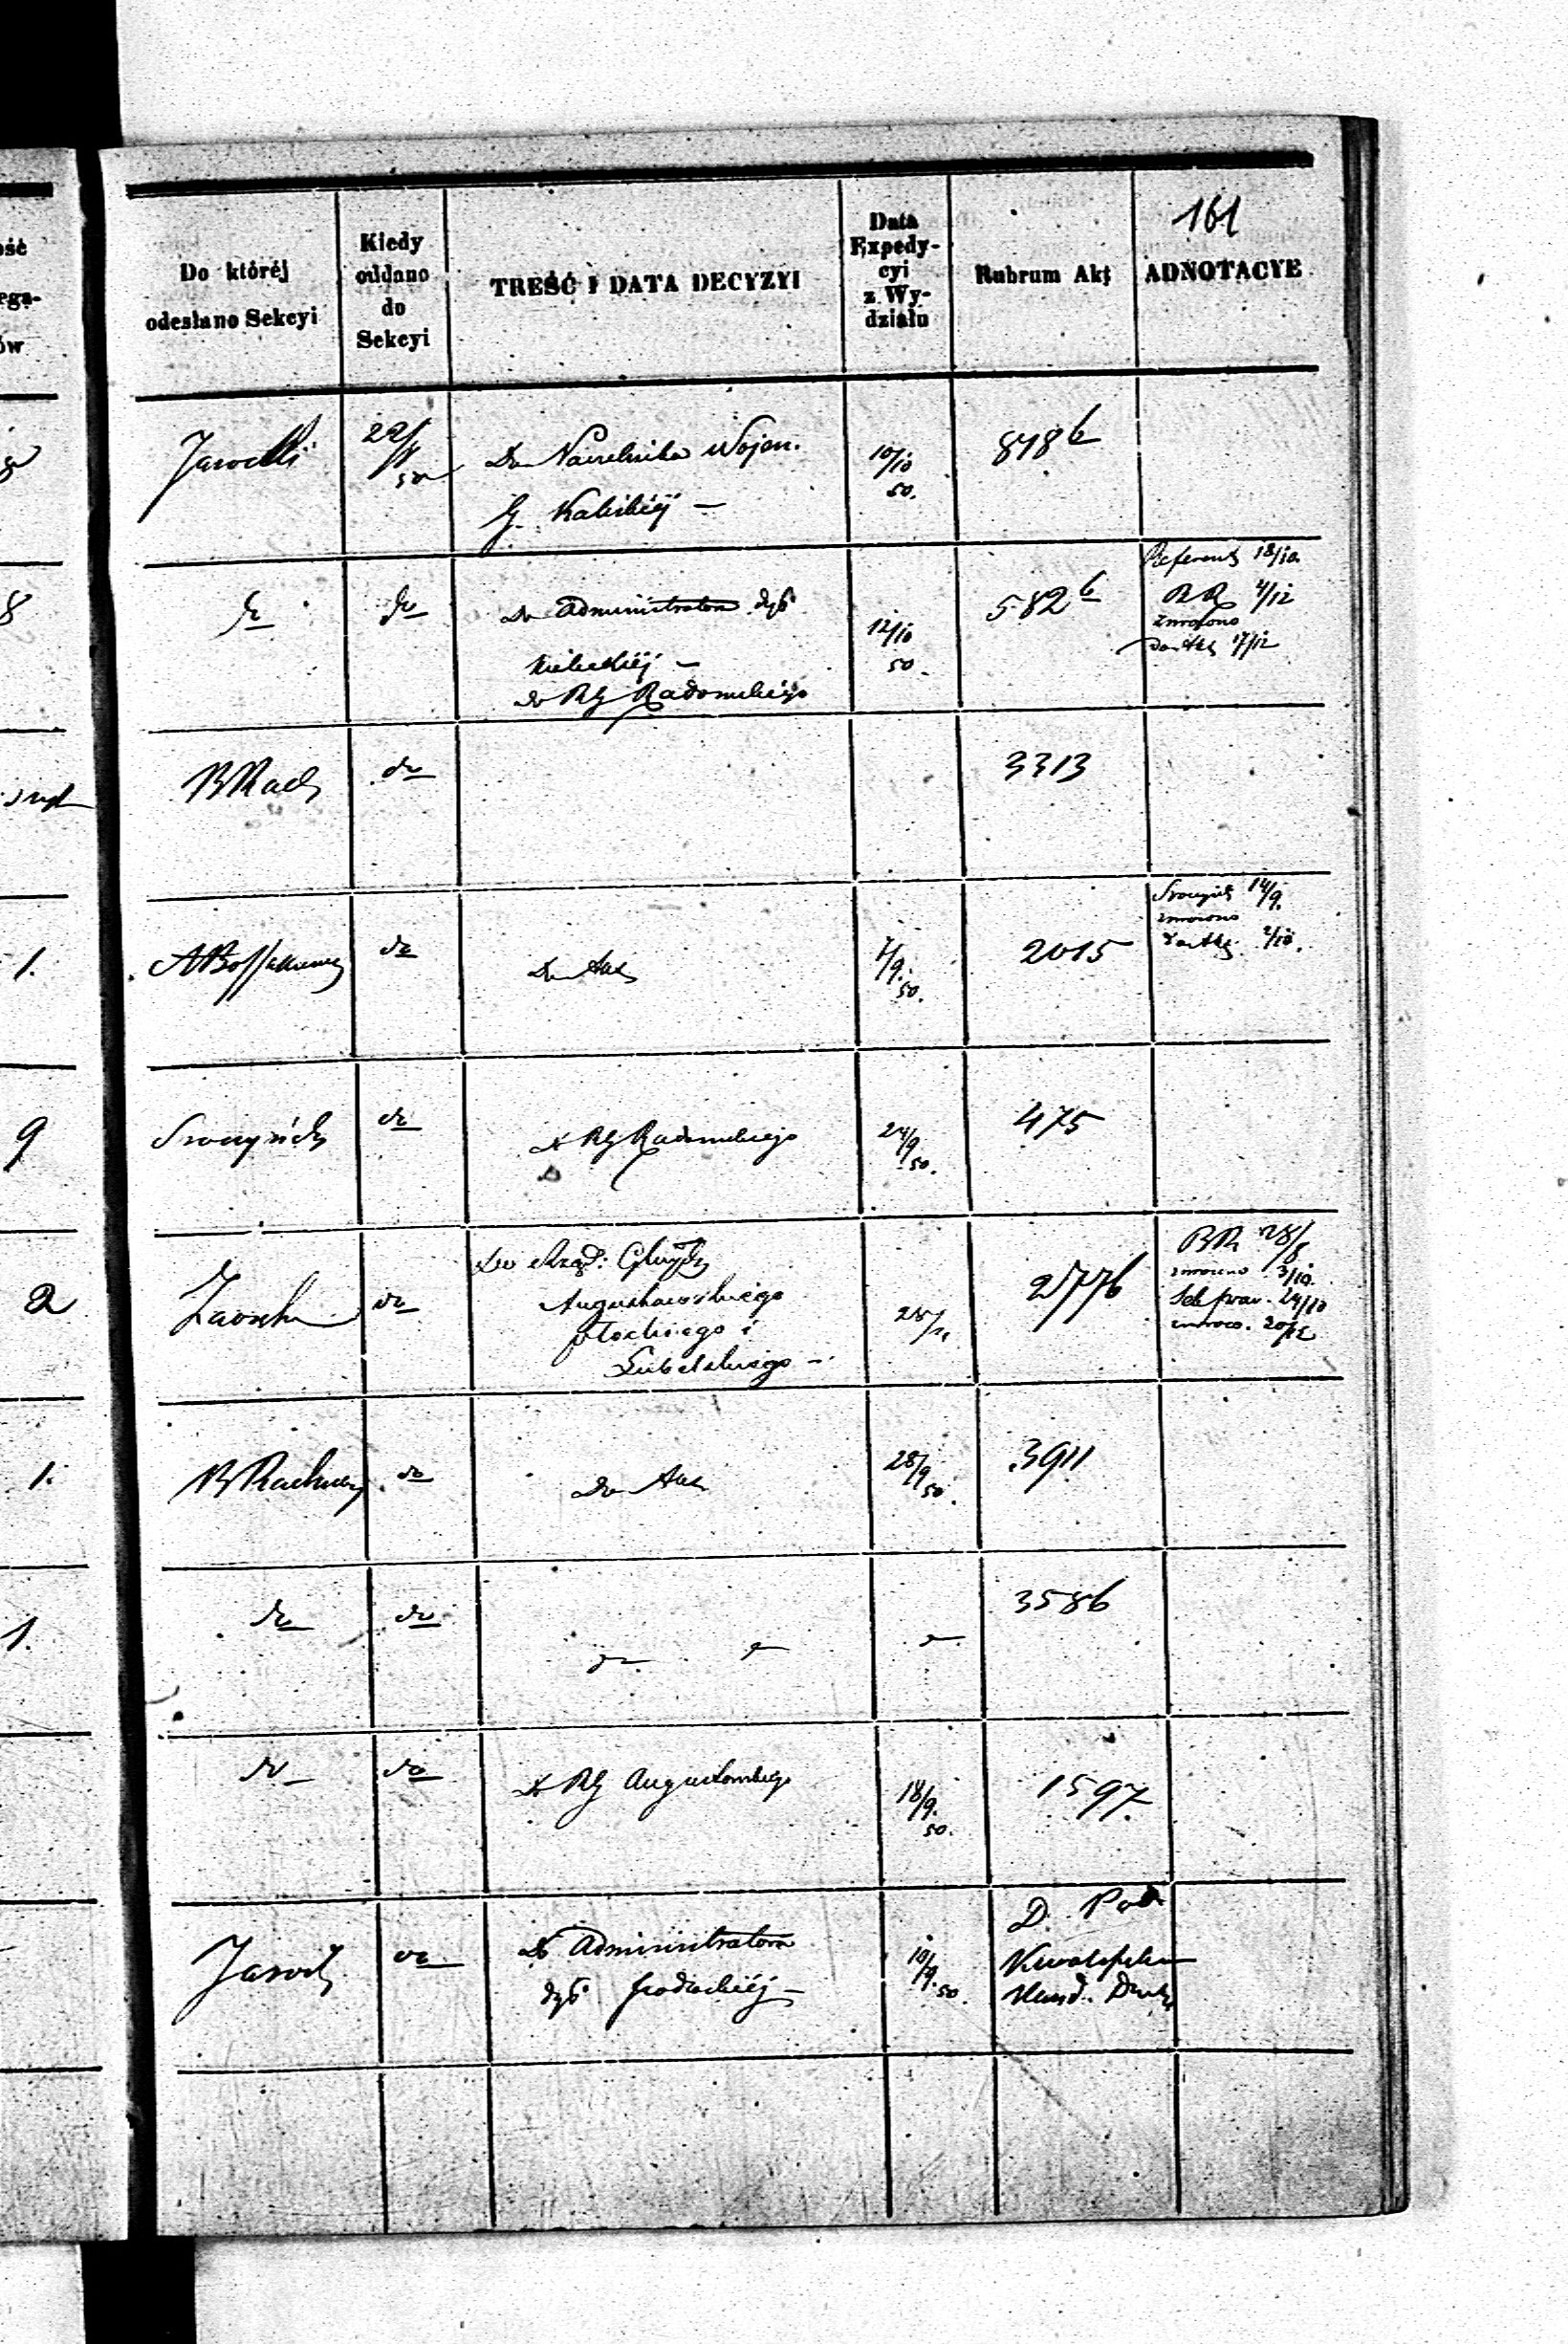 161
Do któréj
odesłano Sekcyi
Kiedy
oddano
do
Sekcyi
TREŚĆ I DATA DECYZYI
Data
Expedy-
cyi
z Wy-
działu
Rubrum Akt
ADNOTACYE
22/8
50
Do Naczelnika Wojen.
G. Kaliskiéj —
10/10
50.
878 b
do
do
Do Administratora dyó
Kieleckiéj —
do RG Radomskiego
12/10
50.
582 b
Referent 18/10.
BR 4/12
zwrócono
do Akt 17/12
B Rach
do
3313
do
Do Akt
7/9.
50.
2015
Sroczyńs 14/9.
zwrócono
do Akt. 2/10.
Sroczyńsk
do
Do RG Radomskiego
24/9
50.
475
do
Do Rząd: Gbrych
Augustowskiego
Płockiego i
Lubelskiego —
2776
BR 28/8
zwrócono 3/10.
24/10
zwróco. 20/12
B Rachun
do
Do Akt
28/9
50.
3911
do
do
3586
do
do
Do RG Augustowskiego
18/9.
50.
1597.
Jarock
do
Do Administratora
dyó Podlaskiéj —
10/9.
50.
D.